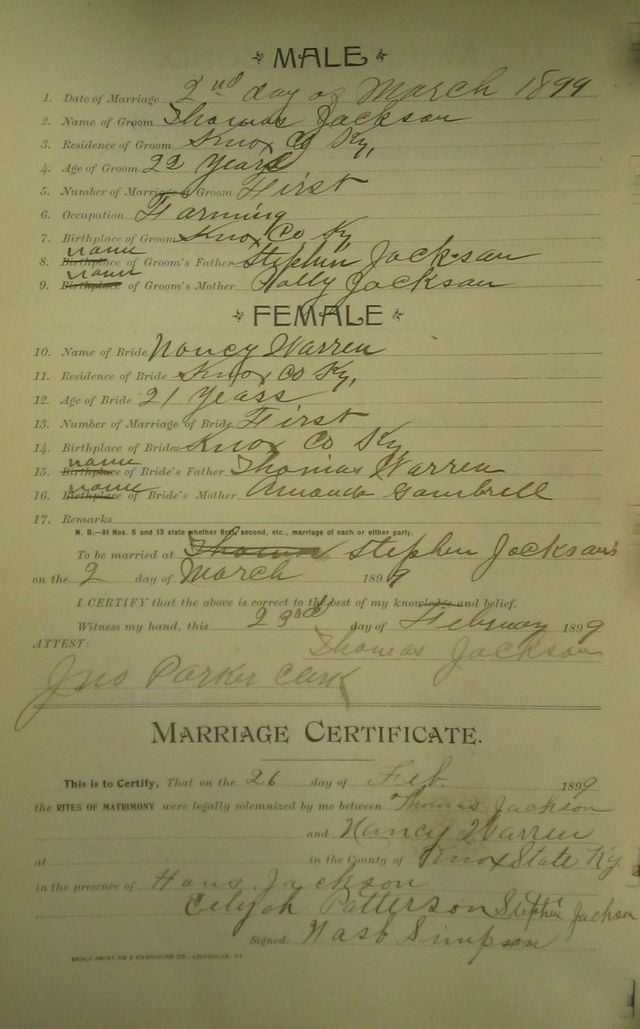 MALE
1. Date of Marriage 2nd day of March 1899
2. Name of Groom Thomas Jackson
3. Residence of Groom Knox Co Ky,
4. Age of Groom 22 Years
5. Number of Marriage of Groom First
6. Occupation Farming
7. Birthplace of Groom Knox Co Ky
name
8. Birthplace of Groom's Father Stephin Jackson
name
9. Birthplace of Groom's Mother Polly Jackson
FEMALE
10. Name of Bride Nancy Warren
11. Residence of Bride Knox Co Ky,
12. Age of Bride 21 Years
13. Number of Marriage of Bride First
14. Birthplace of Bride Knox Co Ky
name
15. Birthplace of Bride's Father Thomas Warren
name
16. Birthplace of Bride's Mother Amanda Gambrell
17. Remarks
N. B.—At Nos. 5 and 13 state whether first, second, etc., marriage of each or either party.
To be married at Thomas Stephen Jackson's
on the 2 day of March 1899
I CERTIFY that the above is correct to the best of my knowledge and belief.
Witness my hand, this 23rd day of February 1899
ATTEST: Thomas Jackson
Jno Parker Clerk
MARRIAGE CERTIFICATE.
This is to Certify, That on the 26 day of Feb. 1899
the RITES OF MATRIMONY were legally solemnized by me between Thomas Jackson
and Nancy Warren
at in the County of Knox State Ky.
in the presence of Hans Jackson
Patterson Stephen Jackson
Signed: Simpson
PRINTING & ENGRAVING CO., LOUISVILLE, KY